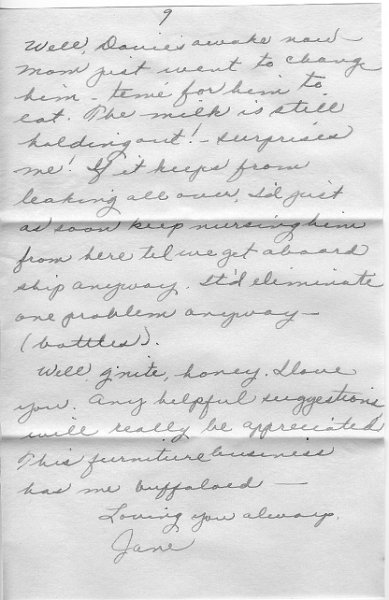 9
Well, Davie's awake now
Mom just went to change
him - time for him to
eat. The milk is still
holding out! - surprises
me! If it keeps from
leaking all over, I'd just
as soon keep nursing him
from here til we get aboard
ship anyway. It'd eliminate
one problem anyway -
(bottles).
Well g'nite, honey. I love
you. Any helpful suggestions
will really be appreciated
This furniture business
has me buffaloed —
Loving you always,
Jane